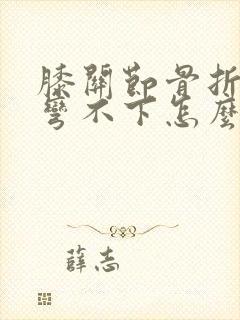 膝關節骨折
彎不下怎麼
薛志